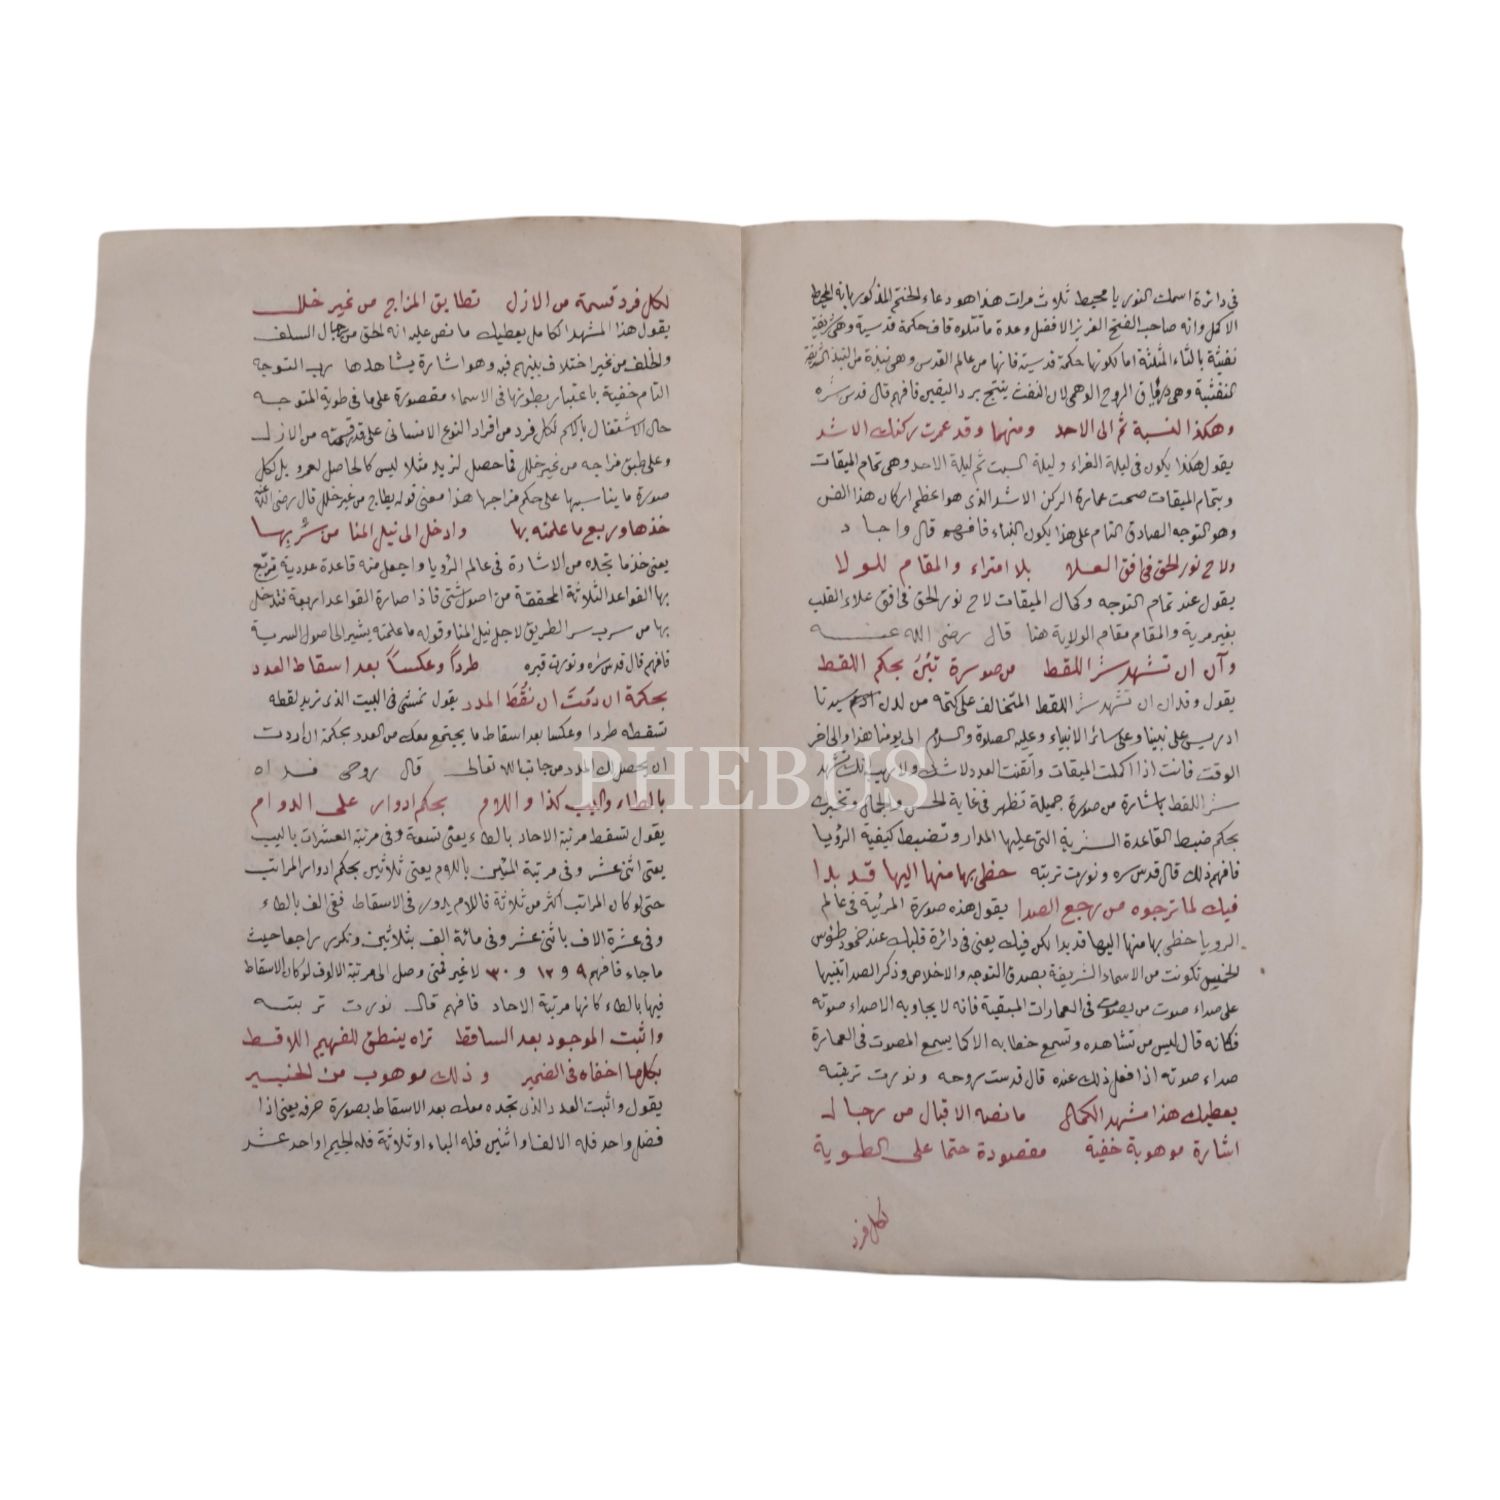 في دائرة اسمك النور يا محيط ثلاث مرات هذا هو دعاء الختم المذكور بانه المحيط
الاكل وانه صاحب الفتح العزيز الافضل وعدة ما تتلوه قاف حكمة قدسية وهي شريفة
نفثية بالثاء المثلثة اما كونها حكمة قدسية فانها من عالم القدس وهي نبذة من النبذ الشريفة
النفثية وهي من الروح الوهمي لان النفث ينتج برد اليقين فافهم قال قدس سره
وهكذا النسبة ثم الى الاحد ومنهما وقد عمرت ركنك الاشد
يقول هكذا يكون في ليلة الغراء وليلة السبت ثم ليلة الاحد وهي تمام الميقات
وبتمام الميقات صحت عمارة الركن الاشد الذي هو اعظم اركان هذا الفن
وهو التوجه الصادق التام على هذا يكون البناء فافهم قال واجاد
ولاح نور الحق في افق العلا بلا امتراء والمقام للولا
يقول عند تمام التوجه وكمال الميقات لاح نور الحق في افق علاء القلب
بغير مرية والمقام مقام الولاية هنا قال رضي الله عنه
وآن ان تشهد سر اللقط من صورة تبين بحكم اللقط
يقول وقد ان ان تشهد سر اللقط المتخالف على كتمه من لدن سيدنا
ادريس على نبينا وعلى سائر الانبياء وعليه الصلوة والسلام الى يومنا هذا والى اخر
الوقت فانت اذا اكملت الميقات وأتقنت العدد لا شك ولا ريب انك تشهد
سر اللقط باشارة من صورة جميلة تظهر في غاية الحسن والجمال وتخبرك
بحكم ضبط القاعدة السرية التي عليها المدار وتضبط كيفية الرؤيا
فافهم ذلك قال قدس سره ونورت تربته حظى بها منها اليها قد بدا
فيك لما ترجوه من رجع الصدا يقول هذه صورة المرئية في عالم
الرويا حظى بها منها اليها قد بدا لكن فيك يعني في دائرة قلبك عند خمود طنوس
الخنيس تكونت من الاسماء الشريفة بصدق التوجه والاخلاص وذكر الصدا تنبيها
على صداء صوت من يصوت في العمارات المبنية فانه لا يجاوبه الا صداء صوته
فكانه قال ليس من تشاهده وتسمع خطابه الا كما يسمع المصوت في العمارة
صداء صوته اذا فعل ذلك عنده قال قدست روحه ونورت تربته
يعطيك هذا مشهد الكمال ما نصه الاقبال من رجال
اشارة موهوبة خفية مقصورة حتما على الطوية
لكل فرد
لكل فرد قسمة من الازل تطابق المزاج من غير خلل
يقول هذا المشهد الكامل يعطيك ما نص عليه انه الحق من رجال السلف
والخلف من غير اختلاف بينهم فيه وهو اشارة يشاهدها رب التوجه
التام خفية باعتبار بطونها في الاسماء مقصورة على ما في طوية المتوجه
حال الاشتغال بالاسم لكل فرد من افراد النوع الانساني على قدر قسمته من الازل
وعلى طبق مزاجه من غير خلل فما حصل لزيد مثلا ليس كالحاصل لعمرو بل لكل
صورة ما يناسبها على حكم مزاجها هذا معنى قوله يطابق من غير خلل قال رضي الله عنه
خذها وربع ما علمته بها وادخل الى نيل المنا من سربها
يعني خذ ما تجده من الاشارة في عالم الرؤيا واجعل منه قاعدة عددية تربع
بها القواعد الثلاثة المحققة من اصول شتى فاذا صارة القواعد اربعة فتدخل
بها من سرب سر الطريق لاجل نيل المنا وقوله ما علمته يشير الى اصول السرية
فافهم قال قدس سره ونورت قبره طرداً وعكساً بعد اسقاط العدد
بحكمة ان رمت ان نقط المدد يقول تمشي في البيت الذي تريد لقطه
تسقطه طردا وعكسا بعد اسقاط ما يجتمع معك من العدد بحكمة ان اردت
ان يحصل لك المدد من جانب الله تعالى قال روحي فداه
بالطاء واليب كذا واللام بحكم ادوار على الدوام
يقول تسقط مرتبة الاحاد بالطاء يعني تسعة وفي مرتبة العشرات باليب
يعني اثني عشر وفي مرتبة المئين باللام يعني ثلاثين بحكم ادوار المراتب
حتى لو كان المراتب اكثر من ثلاثة فاللام يدور في الاسقاط ففي الف بالطاء
وفي عشرة الاف باثني عشر وفي مائة الف بثلاثين وتكرر راجعا حيث
ما جاء فافهم ٩ و ١٢ و ٣٠ لا غير فمتى وصل الى مرتبة الالوف لو كان الاسقاط
فيها بالطاء كانها مرتبة الاحاد فافهم قال نورت تربته
واثبت الموجود بعد الساقط تراه ينطق للفهيم اللاقط
بكل ما اخفاه في الضمير وذلك موهوب من الخبير
يقول واثبت العدد الذي تجده معك بعد الاسقاط بصورة حرفه يعني اذا
فضل واحد فله الالف او اثنين فله الباء او ثلاثة فله الجيم او احد عشر
PHEBUS